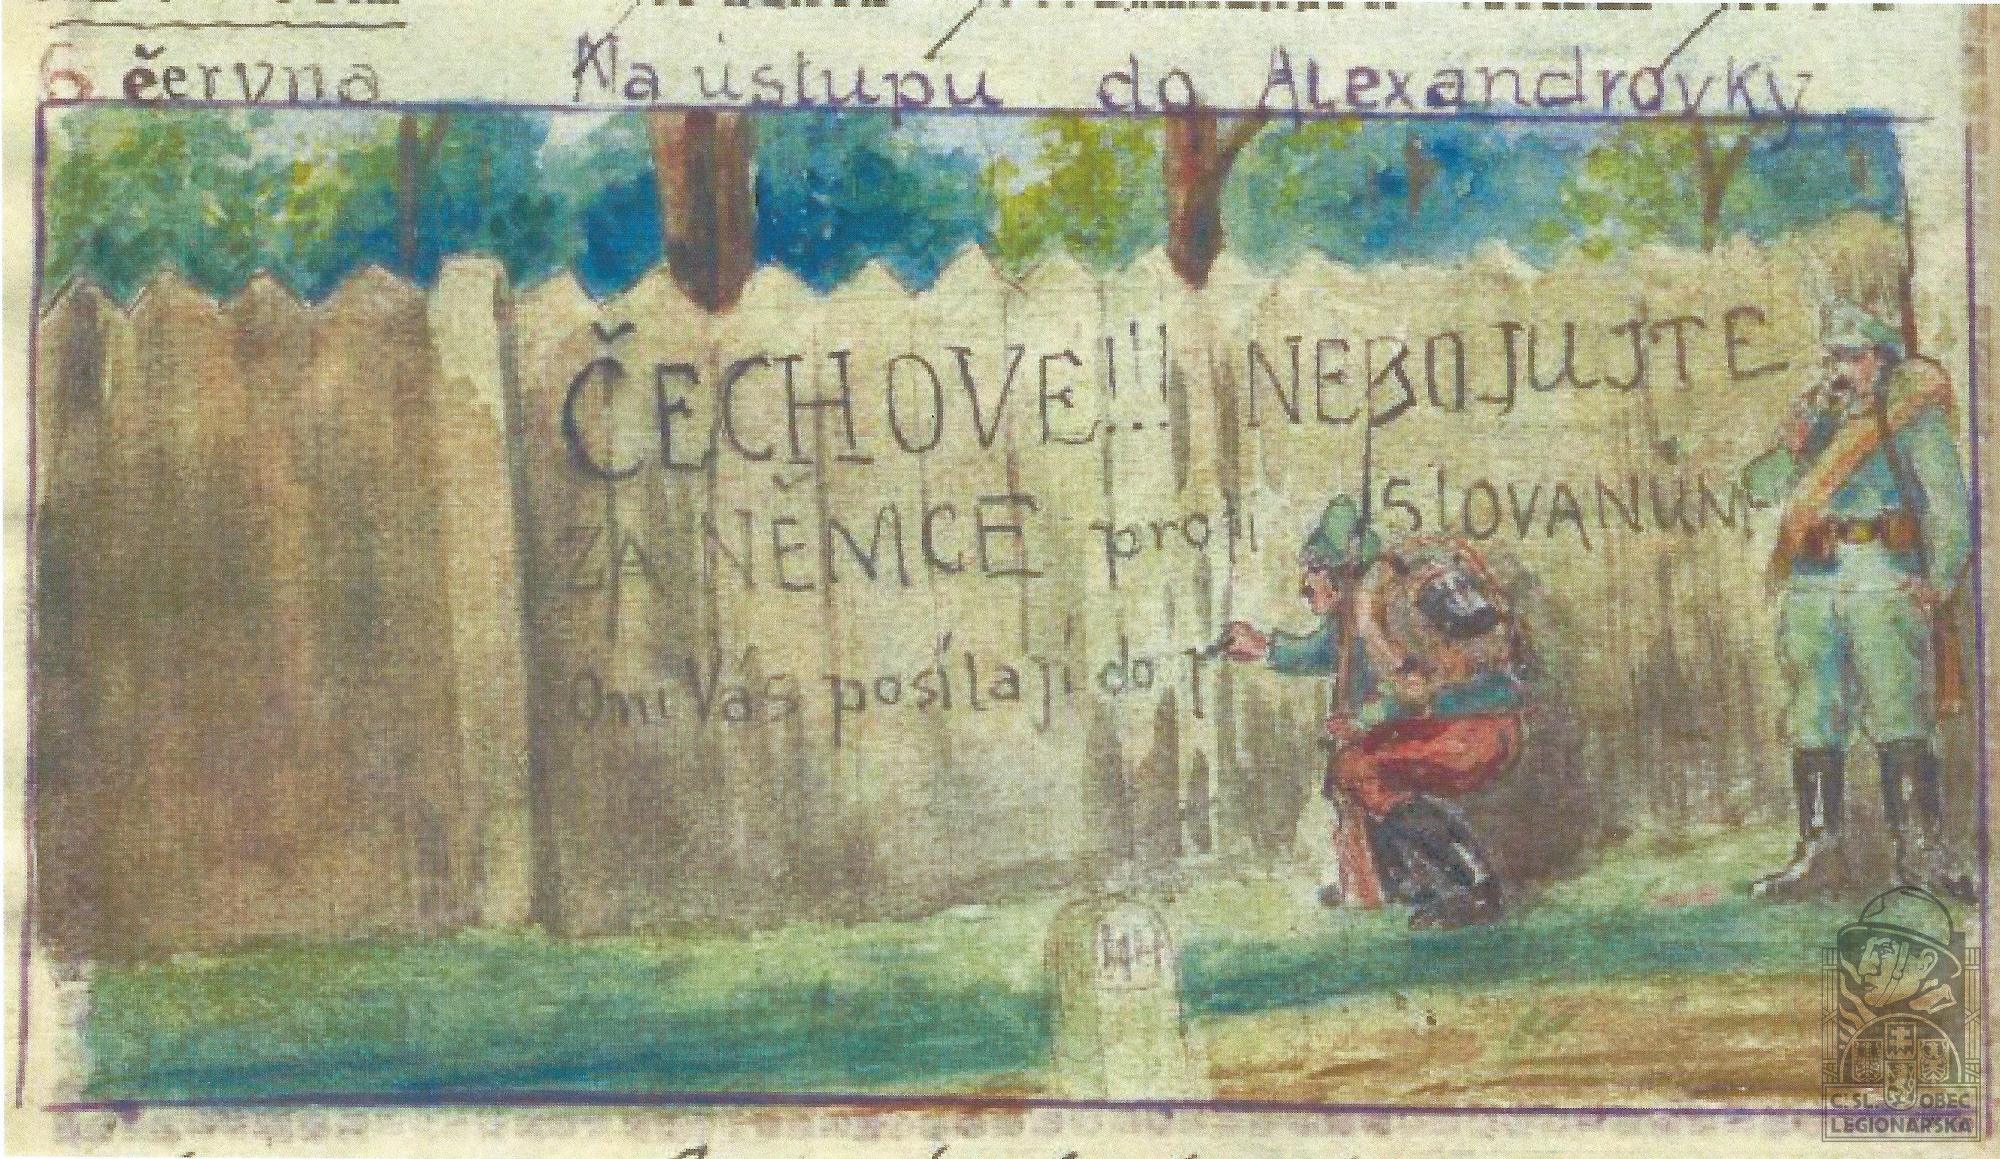 6 června Na ústupu do Alexandrovky
ČECHOVE!!! NEBOJUJTE
ZA NĚMCE proti SlOVANŮM
Oni Vás posílají do
144
Č. SL. OBEC
LEGIONÁŘSKÁ